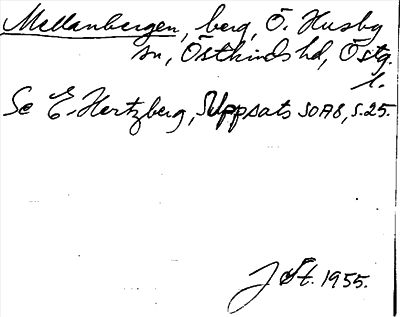 Mellanbergen, berg, Ö. Husby
sn, Östkinds hd, Östg.
l.
Se E. Hertzberg, Uppsats SOÄ8, s. 25.
J St. 1955.